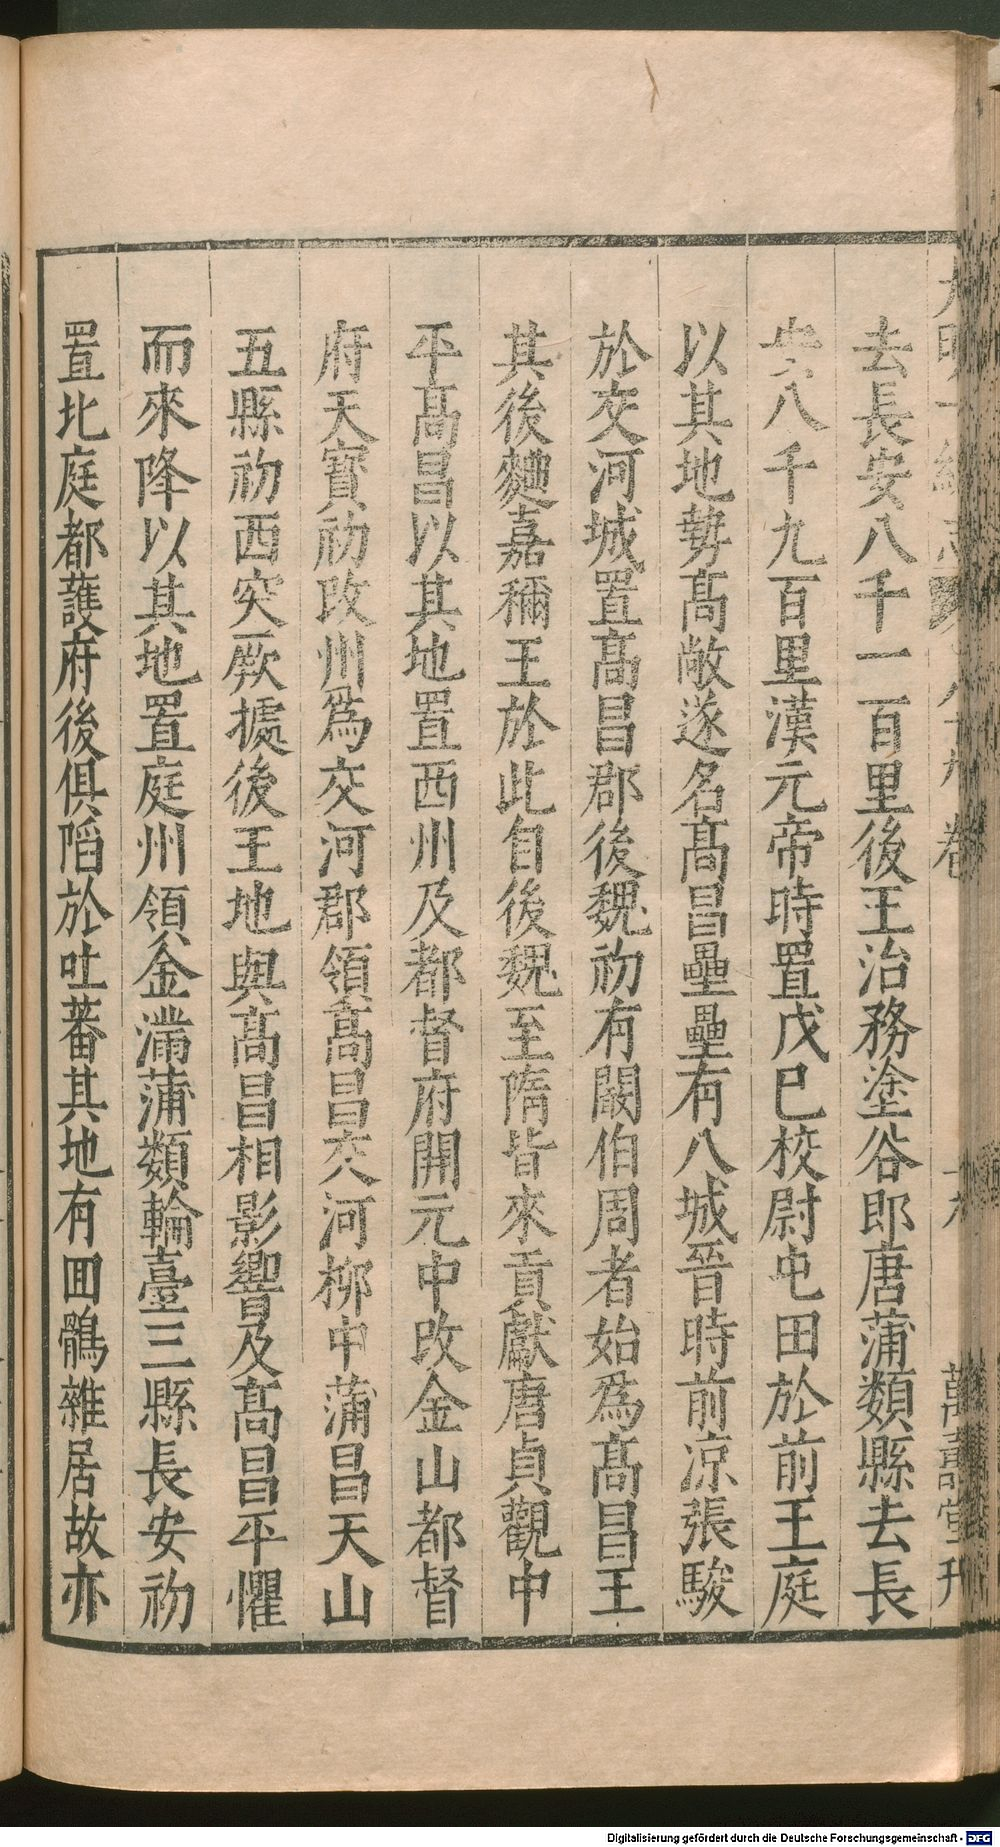 大明一統志 八十九卷 萬壽堂刊
去長安八千一百里後王治務塗谷郎唐蒲類縣去長
安八千九百里漢元帝時置戊巳校尉屯田於前王庭
以其地勢高敞遂名高昌壘壘有八城晉時前凉張駿
於交河城置高昌郡後魏初有闞伯周者始爲高昌王
其後麴嘉稱王於此自後魏至隋皆來貢獻唐貞觀中
平高昌以其地置西州及都督府開元中改金山都督
府天寶初改州爲交河郡領高昌交河柳中蒲昌天山
五縣初西突厥據後王地與高昌相影響及高昌平懼
而來降以其地置庭州領金滿蒲類輪臺三縣長安初
置北庭都護府後俱陷於吐蕃其地有囬鶻雜居故亦
Digitalisierung gefördert durch die Deutsche Forschungsgemeinschaft - DFG